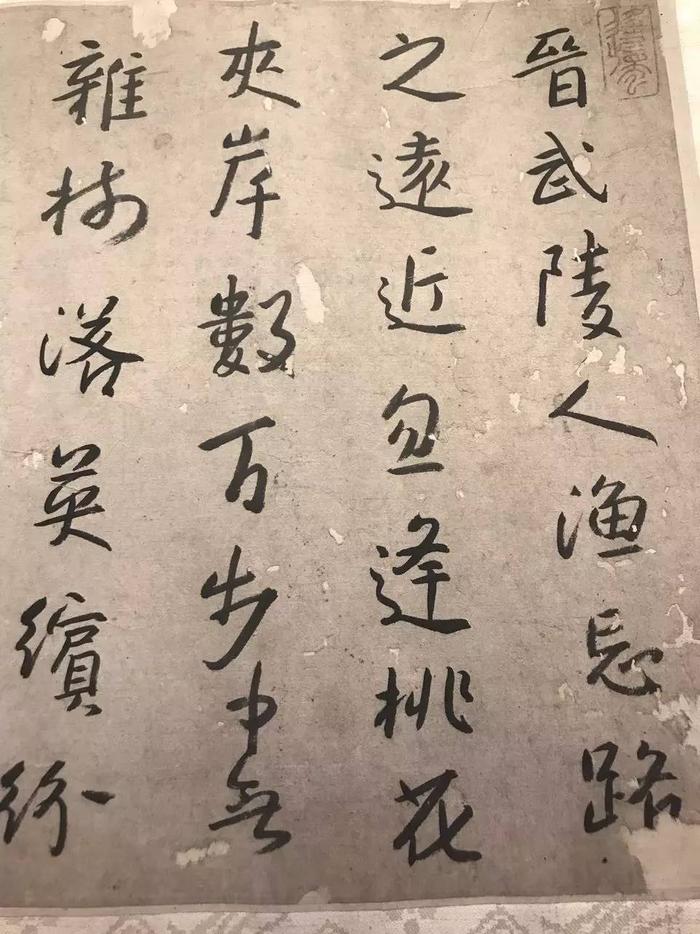 晉武陵人漁忘路
之遠近忽逢桃花
夾岸數百步中無
雜樹落英繽紛